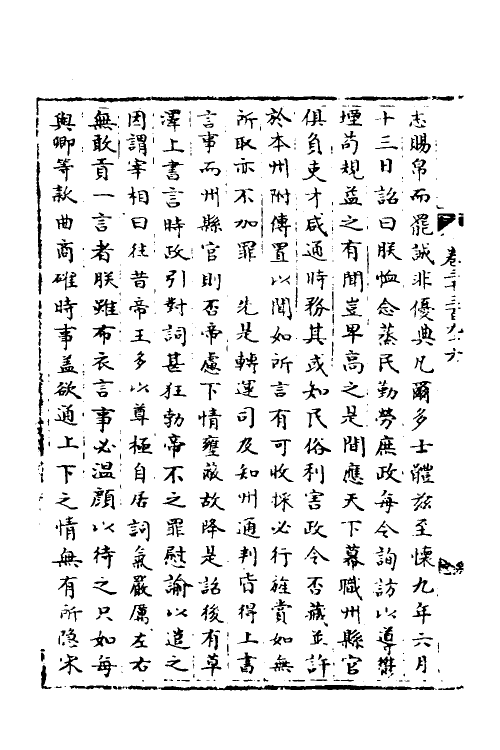 卷三百九十六
志賜帛而罷誠非優典凡爾多士體茲至懷九年六月
十三日詔曰朕恤念蒸民勤勞庶政每令詢訪以導鬱
堙苟規益之有聞豈卑高之是間應天下幕職州縣官
俱負吏才咸通時務其或知民俗利害政令否臧並許
於本州附傳置以聞如所言有可收採必行旌賞如無
所取亦不加罪　先是轉運司及知州通判皆得上書
言事而州縣官則否帝慮下情壅蔽故降是詔後有草
澤上書言時政引對詞甚狂勃帝不之罪慰諭以遣之
因謂宰相曰往昔帝王多以尊極自居詞氣嚴厲左右
無敢貢一言者朕雖布衣言事必溫顏以待之只如每
與卿等款曲商確時事蓋欲通上下之情無有所隱宋